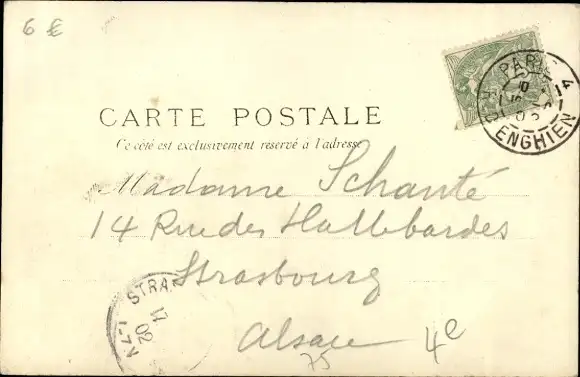 6 €
PARIS 4
ENGHIEN
CARTE POSTALE
Ce côté est exclusivement réservé à l'adresse
Madame Schanté
14 Rue des Hallebardes
Strasbourg
Alsace
4e
75
STRA
17
02